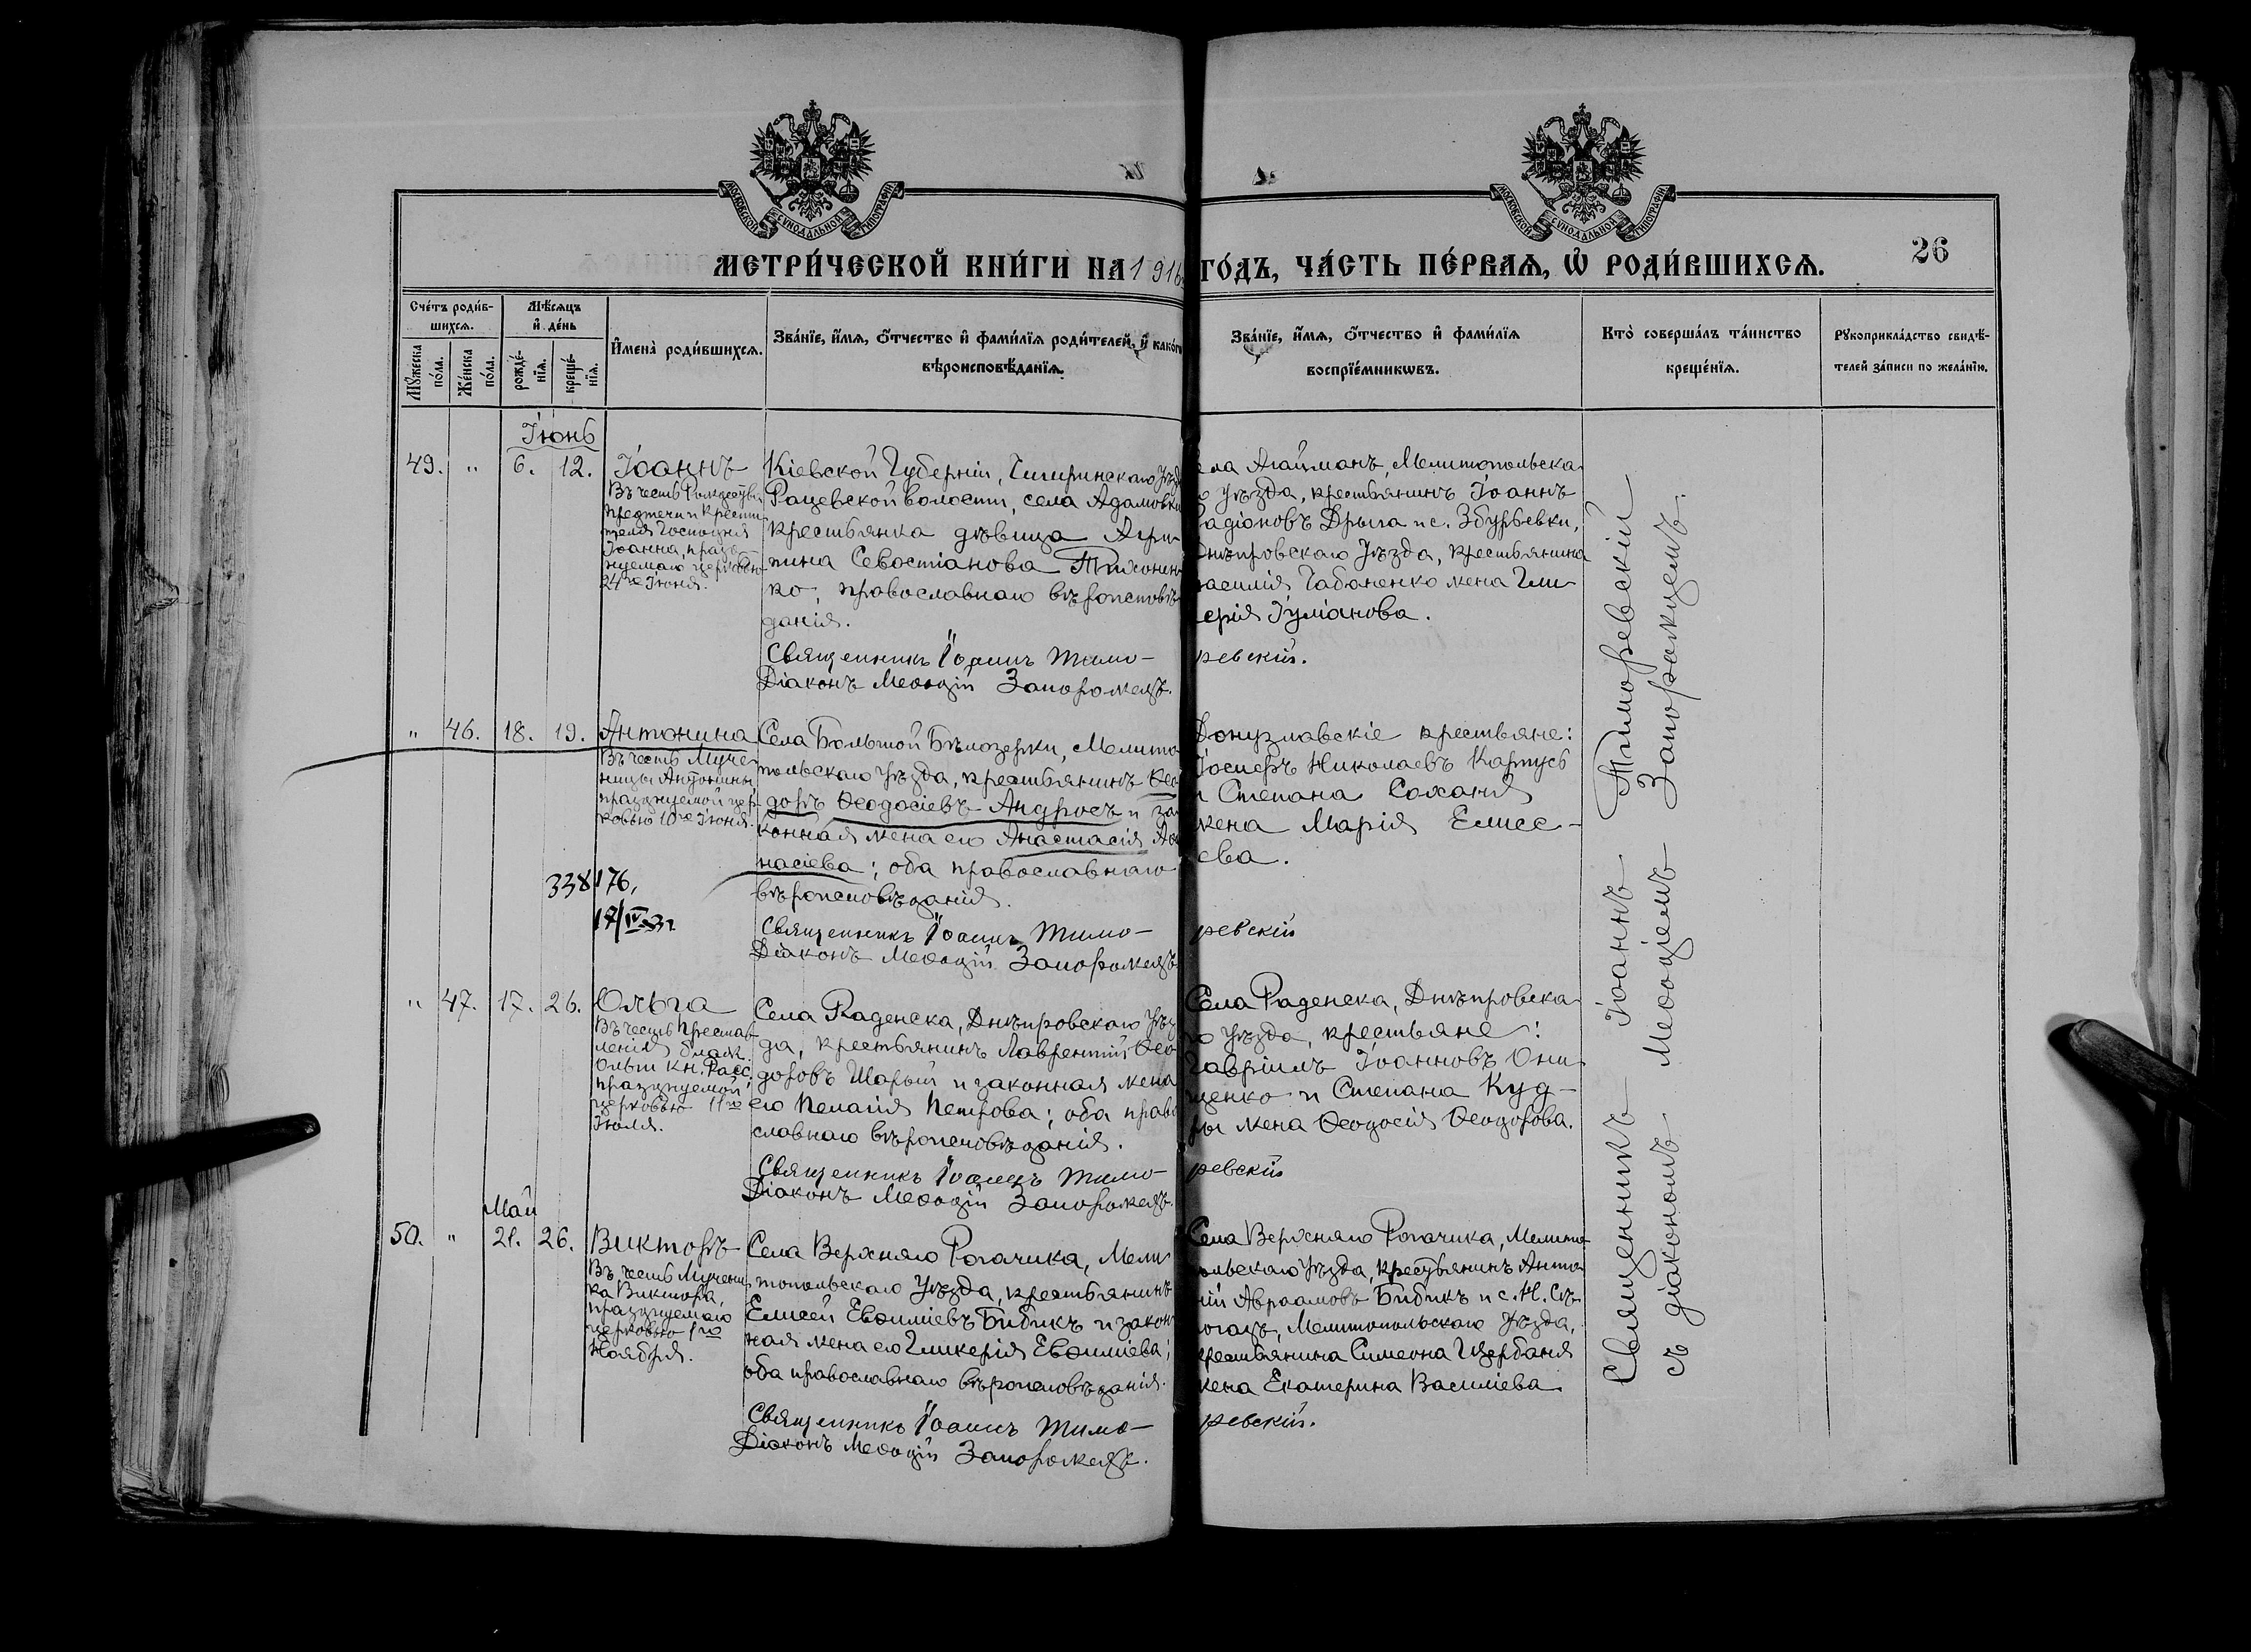 МОСКОВСКОЙ СѴНОДАЛЬНОЙ ТИПОГРАФІИ
МОСКОВСКОЙ СѴНОДАЛЬНОЙ ТИПОГРАФІИ
26
МЕТРИ́ЧЕСКОЙ КНИ́ГИ НА 1916 ГО́ДЪ, ЧА́СТЬ ПЕ́РВАЯ, Ѡ РОДИ́ВШИХСЯ.
Сче́тъ роди́в-
шихся.
Мѣ́сяцъ
и҆ де́нь
Му́жеска по́ла.
Же́нска по́ла.
рожде́-
нїя.
креще́-
нїя.
И҆мена̀ роди́вшихся.
Зва́нїе, и҆́мя, ѻ҆́тчество и҆ фами́лїя роди́телей, и҆ како́гѡ
вѣроисповѣ́данїя.
Зва́нїе, и҆́мя, ѻ҆́тчество и҆ фами́лїя
воспрїе́мникѡвъ.
Кто̀ соверша́лъ та́инство
креще́нїя.
Рꙋкоприкла́дство свидѣ́-
телей за́писи по жела́нїю.
Іюнь
49. " 6. 12.
Іоаннъ
Въ честь Рождества
Предтечи и Крести-
теля Господня
Іоанна, празд-
нуемаго церковью
24го Іюня.
Кіевской Губерніи, Чигиринскаго Уѣзд
Рацевской волости, села Адамовки
крестьянка дѣвица Агри-
пина Севостіанова Тихонен-
ко, православнаго вѣроисповѣ-
данія.
Священникъ Іоаннъ Тимо-
Діаконъ Меѳодій Запорожецъ.
ела Агайманъ, Мелитопольска-
о Уѣзда, крестьянинъ Іоаннъ
адіоновъ Дрыга и с. Збурьевки,
Днѣпровскаго Уѣзда, крестьянина
василія Чабаненко жена Гли-
керія Іуліанова.
ревскій.
" 46. 18. 19.
Антонина
Въ честь Муче-
ницы Антонины,
празднуемой цер-
ковью 10го Іюня.
Села Большой Бѣлозерки, Мелито-
польскаго Уѣзда, крестьянинъ Ѳео-
доръ Ѳеодосіевъ Андросъ и за-
конная жена его Анастасія Аѳа-
насіева; оба православнаго
вѣроисповѣданія.
338176,
17/IV-31
Священникъ Іоаннъ Тимо-
Діаконъ Меѳодій Запорожецъ
Донузлавскіе крестьяне:
Іосифъ Николаевъ Картусь
и Степана Соханя
жена Марія Елисе-
ева.
ревскій
" 47. 17. 26.
Ольга
Въ честь Престав-
ленія блаж.
Ольги кн. Росс.
празднуемой
церковью 11го
Іюля.
Села Раденска, Днѣпровскаго Уѣз-
да, крестьянинъ Лаврентій Ѳео-
доровъ Шарый и законная жена
его Пелагія Петрова; оба право-
славнаго вѣроисповѣданія.
Священникъ Іоаннъ Тимо-
Діаконъ Меѳодій Запорожецъ.
Села Раденска, Днѣпровска-
го Уѣзда, крестьяне:
Гавріилъ Іоанновъ Они-
щенко и Степана Куд-
ры жена Ѳеодосія Ѳеодорова.
ревскій
Май
50. " 21. 26.
Викторъ
Въ честь Мучени-
ка Виктора,
празднуемаго
церковью 1го
Ноября.
Села Верхняго Рогачика, Мели-
топольскаго Уѣзда, крестьянинъ
Елисей Евѳиміевъ Бибикъ и закон-
ная жена его Гликерія Евѳиміева;
оба православнаго вѣроисповѣданія.
Священникъ Іоаннъ Тимо-
Діаконъ Меѳодій Запорожецъ.
Села Верхняго Рогачика, Мелито-
польскаго Уѣзда, крестьянинъ Анто-
ній Авраамовъ Бибикъ и с. Н. Сѣ-
рогозъ, Мелитопольскаго Уѣзда,
крестьянина Симеона Щербаня
жена Екатерина Василіева
ревскій.
Священникъ Іоаннъ Тиморевскій
съ діакономъ Меѳодіемъ Запорожцемъ.